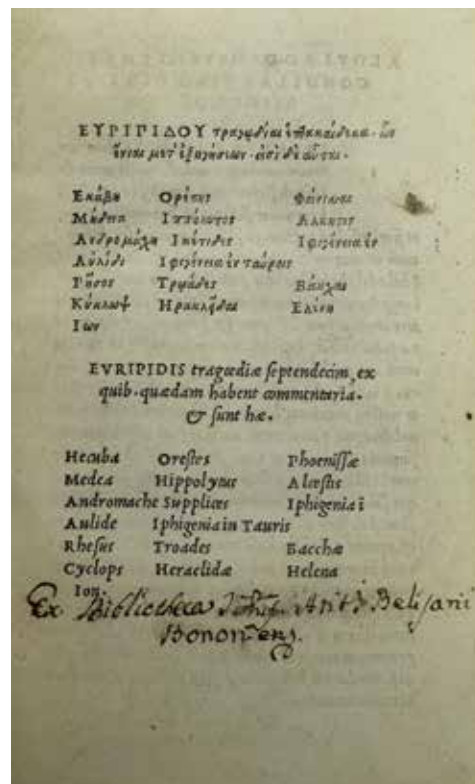 ΕΥΡΙΠΙΔΟΥ τραγῳδίαι ἑπτακαίδεκα· ὧν
ἔνιαι μετ' ἐξηγήσεων· εἰσὶ δὲ αὗται·
Εκάβη Ορέστης Φοίνισσαι
Μήδεια Ιππόλυτος Αλκηστις
Ανδρομάχη Ικέτιδες Ιφιγένεια ἐν
Αὐλίδι Ιφιγένεια ἐν ταύροις
Ρῆσος Τρῳάδες Βάκχαι
Κύκλωψ Ηρακλεῖδαι Ελένη
Ιων
EVRIPIDIS tragœdiæ ſeptendecim, ex
quib. quædam habent commentaria.
& ſunt hæ.
Hecuba Oreſtes Phoeniſſæ
Medea Hippolytus Alceſtis
Andromache Supplices Iphigenia ĩ
Aulide Iphigenia in Tauris
Rheſus Troades Bacchæ
Cyclops Heraclidæ Helena
Ion.
Ex Bibliotheca Beliſarii